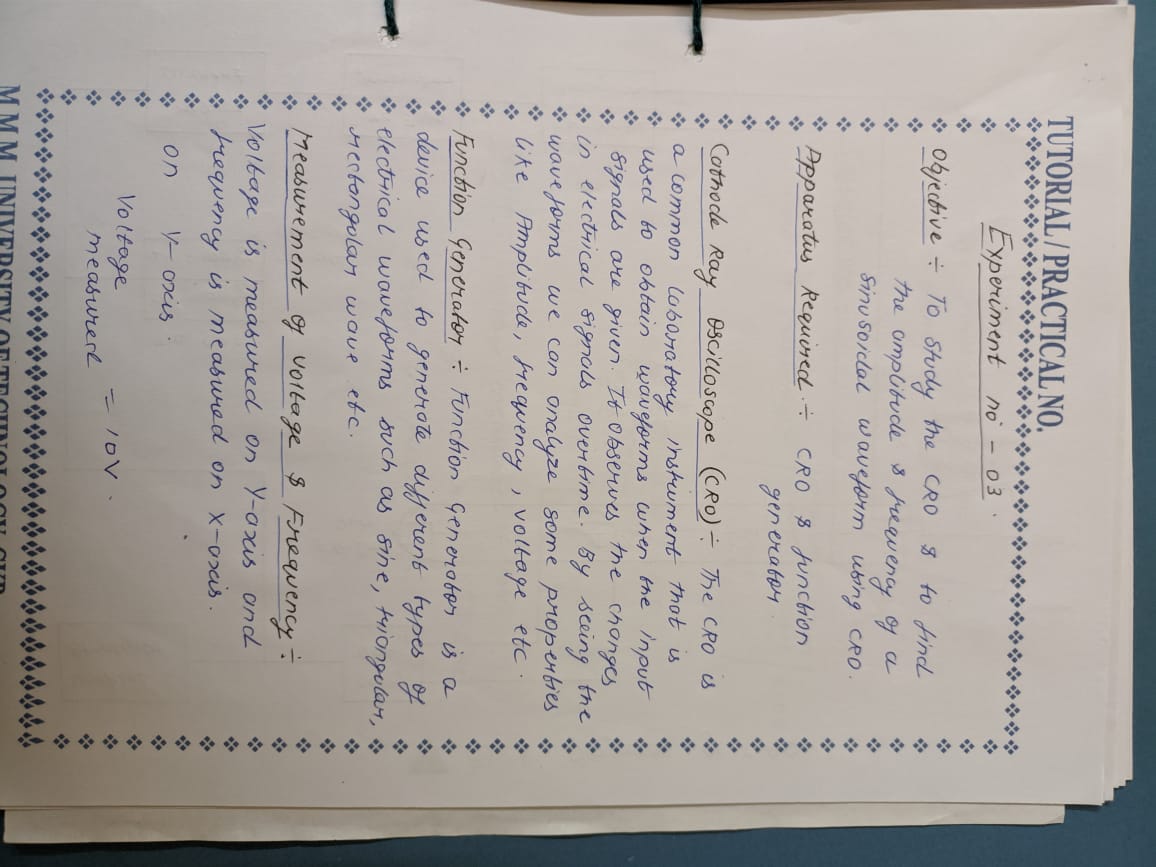 TUTORIAL / PRACTICAL NO.
Experiment no - 03.
Objective ÷ To study the CRO & to find
the amplitude & frequency of a
sinusoidal waveform using CRO.
Apparatus Required ÷ CRO & function
generator.
Cathode Ray Oscilloscope (CRO) ÷ The CRO is
a common laboratory instrument that is
used to obtain waveforms when the input
signals are given. It observes the changes
in electrical signals overtime. By seeing the
waveforms we can analyze some properties
like Amplitude, frequency, voltage etc.
Function Generator ÷ Function generator is a
device used to generate different types of
electrical waveforms such as sine, triangular,
rectangular wave etc.
Measurement of Voltage & Frequency ÷
Voltage is measured on Y-axis and
frequency is measured on X-axis.
on Y-axis.
Voltage
measured = 10V.
M M M UNIVERSITY OF TECHNOLOGY, GKP